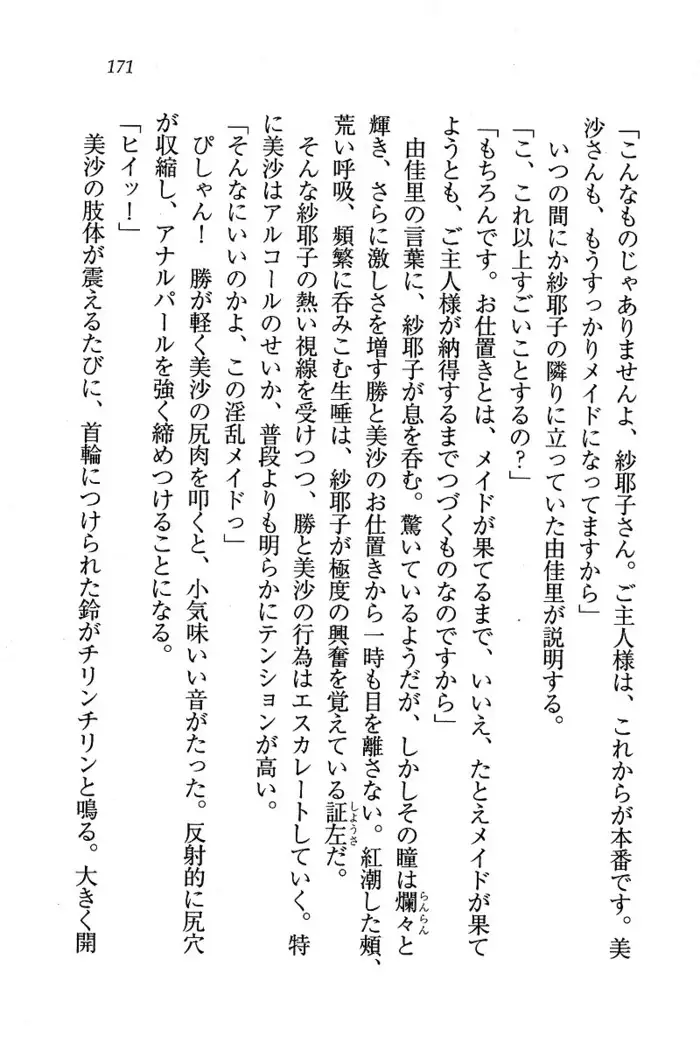 171
「こんなものじゃありませんよ、紗耶子さん。ご主人様は、これからが本番です。美
沙さんも、もうすっかりメイドになってますから」
いつの間にか紗耶子の隣りに立っていた由佳里が説明する。
「こ、これ以上すごいことするの?」
「もちろんです。お仕置きとは、メイドが果てるまで、いいえ、たとえメイドが果て
ようとも、ご主人様が納得するまでつづくものなのですから」
由佳里の言葉に、紗耶子が息を呑む。驚いているようだが、しかしその瞳は爛々と
らんらん
輝き、さらに激しさを増す勝と美沙のお仕置きから一時も目を離さない。紅潮した頬、
荒い呼吸、頻繁に呑みこむ生唾は、紗耶子が極度の興奮を覚えている証左だ。
しようさ
そんな紗耶子の熱い視線を受けつつ、勝と美沙の行為はエスカレートしていく。特
に美沙はアルコールのせいか、普段よりも明らかにテンションが高い。
「そんなにいいのかよ、この淫乱メイドっ」
ぴしゃん! 勝が軽く美沙の尻肉を叩くと、小気味いい音がたった。反射的に尻穴
が収縮し、アナルパールを強く締めつけることになる。
「ヒイッ!」
美沙の肢体が震えるたびに、首輪につけられた鈴がチリンチリンと鳴る。大きく開